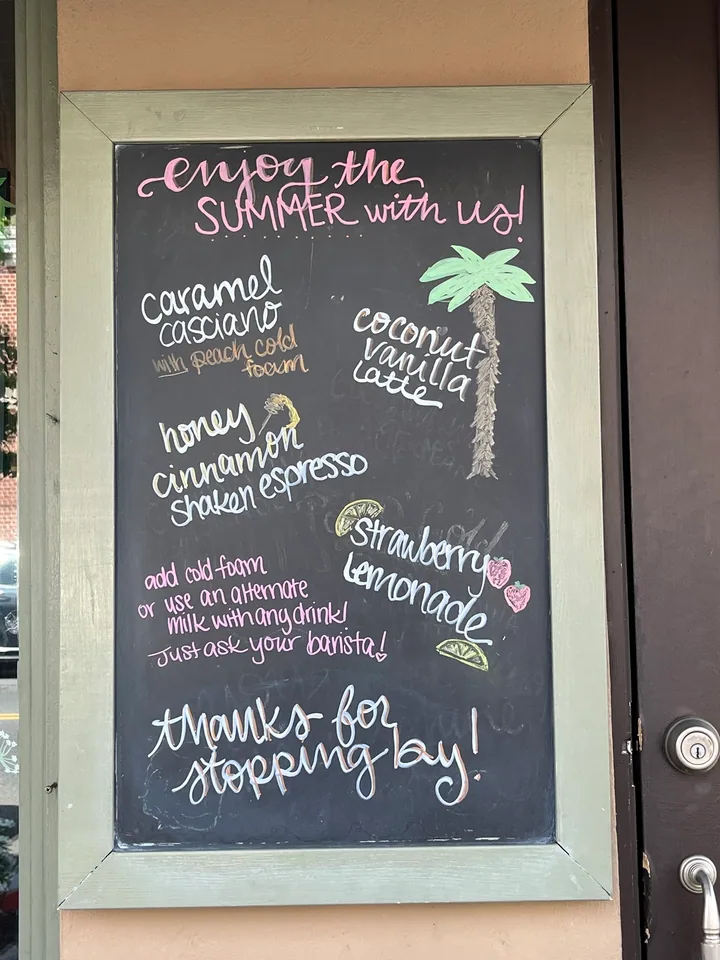 enjoy the
SUMMER with us!
caramel
casciano
with peach cold
foam
coconut
vanilla
Latte
honey
cinnamon
shaken espresso
strawberry
Lemonade
add cold foam
or use an alternate
milk with any drink!
Just ask your barista!
thanks for
stopping by!